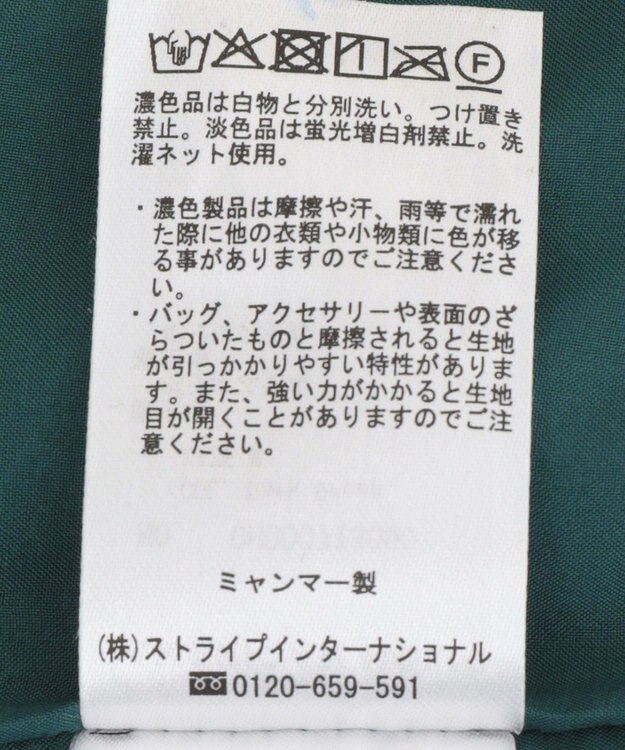 F
濃色品は白物と分別洗い。つけ置き
禁止。淡色品は蛍光増白剤禁止。洗
濯ネット使用。
・濃色製品は摩擦や汗、雨等で濡れ
た際に他の衣類や小物類に色が移
る事がありますのでご注意くださ
い。
・バッグ、アクセサリーや表面のざ
らついたものと摩擦されると生地
が引っかかりやすい特性がありま
す。また、強い力がかかると生地
目が開くことがありますのでご注
意ください。
ミャンマー製
(株)ストライプインターナショナル
0120-659-591